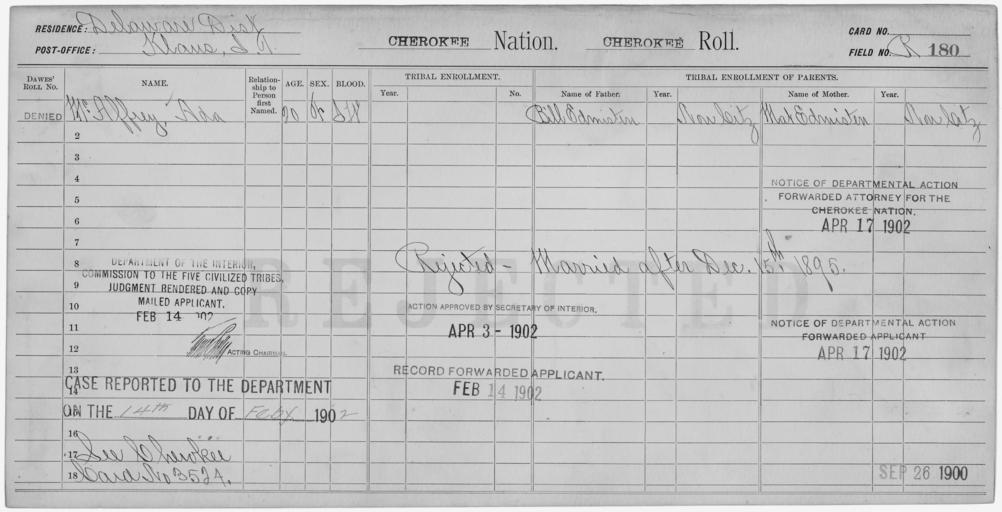 RESIDENCE: Delaware Dist
POST-OFFICE: I.T.
CHEROKEE Nation. CHEROKEE Roll.
CARD NO.
FIELD NO. R 180
DAWES' ROLL NO. NAME. Relationship to Person first Named. AGE. SEX. BLOOD. TRIBAL ENROLLMENT. TRIBAL ENROLLMENT OF PARENTS.
Year. No. Name of Father. Year. Name of Mother. Year.
DENIED McAffrey Ada 20 IW Bill Edmisten Non Citz Mat Edmisten Non Citz
2
3
4
NOTICE OF DEPARTMENTAL ACTION
5
FORWARDED ATTORNEY FOR THE
CHEROKEE NATION.
6
APR 17 1902
7
8
DEPARTMENT OF THE INTERIOR,
COMMISSION TO THE FIVE CIVILIZED TRIBES,
9
JUDGMENT RENDERED AND COPY
MAILED APPLICANT.
FEB 14 1902
ACTING CHAIRMAN.
REJECTED
Rejected - Married after Dec. 15th, 1895.
10
ACTION APPROVED BY SECRETARY OF INTERIOR,
APR 3 - 1902
11
NOTICE OF DEPARTMENTAL ACTION
FORWARDED APPLICANT
12
APR 17 1902
13
RECORD FORWARDED APPLICANT.
FEB 14 1902
14
CASE REPORTED TO THE DEPARTMENT
ON THE 14TH DAY OF Feby. 1902
16
17 See Cherokee
18 Card No 3524.
SEP 26 1900